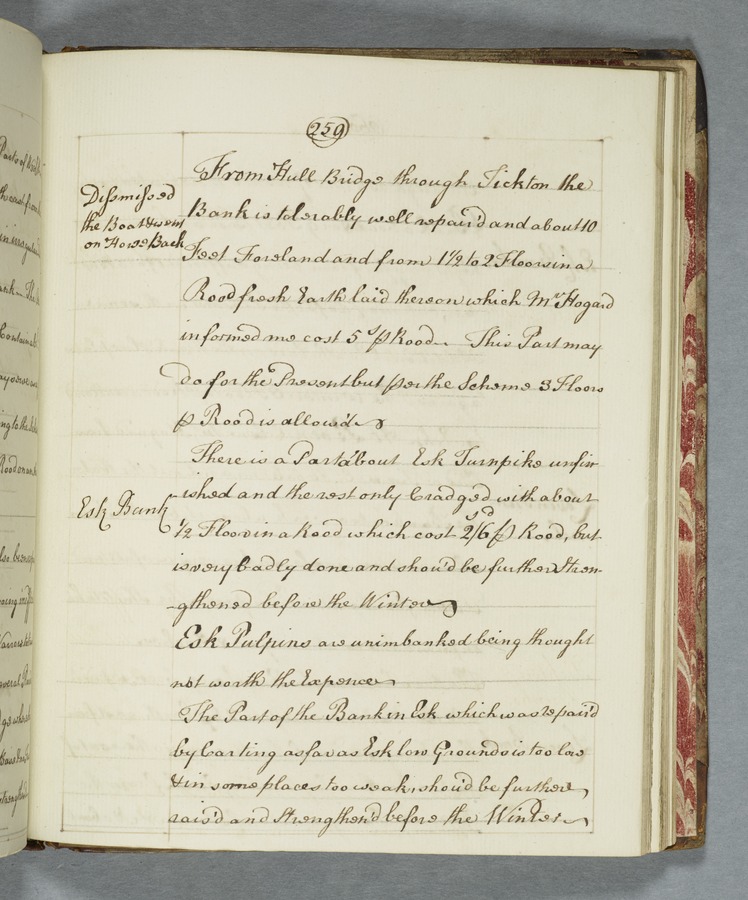 259
Dissmissed
the Boat & went
on Horse Back
From Hull Bridge through Tickton the
Bank is tolerably well repair'd and about 10
Feet Foreland and from 1 1/2 to 2 Floors in a
Rood fresh Earth laid thereon which Mr Hogard
informed me cost 5s ⅌ Rood. This Part may
do for the Present but ⅌ er the Scheme 3 Floors
⅌ Rood is allow'd
There is a Part about Esk Turnpike unfin-
Esk Bank
ished and the rest only Cradged with about
1/2 Floor in a Rood which cost 2s/6d ⅌ Rood, but
is very badly done and shou'd be further stren-
-gthened before the Winter
Esk Pulpins are unimbanked being thought
not worth the Expence
The Part of the Bank in Esk which was repair'd
by Carting as far as Esk low Grounds is too low
& in some places too weak, shou'd be further
rais'd and Strengthen'd before the Winter